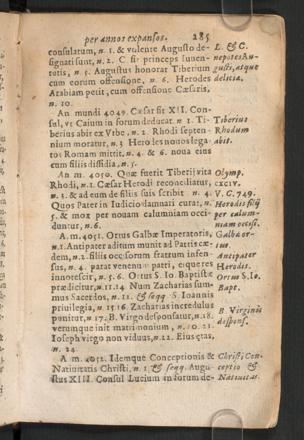 per annos expansos. 285
consulatum, n. 1. & volente Augusto de- L. & C.
signati sunt, n. 2. C fit princeps Iuven- nepotes Au-
tutis, n. 5. Augustus honorat Tiberium gusti, atque
cum eorum offensione, n. 6. Herodes deliciæ.
Arabiam petit, cum offensione Cæsaris,
n. 10.
An mundi 4049. Cæsar sit XII. Con-
sul, vt Caium in forum deducat. n 1. Ti- Tiberius
berius abit ex Vrbe, n. 2. Rhodi septen- Rhodum
nium moratur, n. 3 Herodes nouos lega- abit.
tos Romam mittit, n. 4. & 6. noua eius
cum filiis dissidia, n. 5.
An m. 4050. Quæ fuerit Tiberij vita Olymp.
Rhodi, n. 1. Cæsar Herodi reconciliatur, CXCIV.
n. 3. & ad eum de filiis suis scribit n. 4. V. C. 749.
Quos Pater in Iudicio damnari curat, n. Herodis filij
5. & mox per nouam calumniam occi- per calum-
duntur, n. 6. niam occisi.
A m. 4051. Ortus Galbæ Imperatoris, Galba or-
n. 1. Antipater aditum munit ad Patris cæ- tus.
dem, n. 2. filiis occisorum fratrum infen- Antipater
sus, n. 4. parat venenum patri, eique res Herodes.
innotescit, n. 5. 6. Ortus S. Io. Baptistæ Ortus S. Io.
prædicitur, n. 11. 14 Num Zacharias sum- Bapt.
mus Sacerdos, n. 12. & seqq S. Ioannis
priuilegia, n 15 16 Zacharias incredulus
punitur, n 17. B. Virgo desponsatur, n. 18. B Virginis
verumque init matrimonium, n. 20. 21. dispons.
Ioseph virgo non viduus, n 22. Eius ætas,
n. 24.
A m. 4052. Idemque Conceptionis & Christi Con-
Natiuitatis Christi, n. 1. & seqq. Augu- ceptio &
stus XIII. Consul Lucium in forum de- Natiuitas.